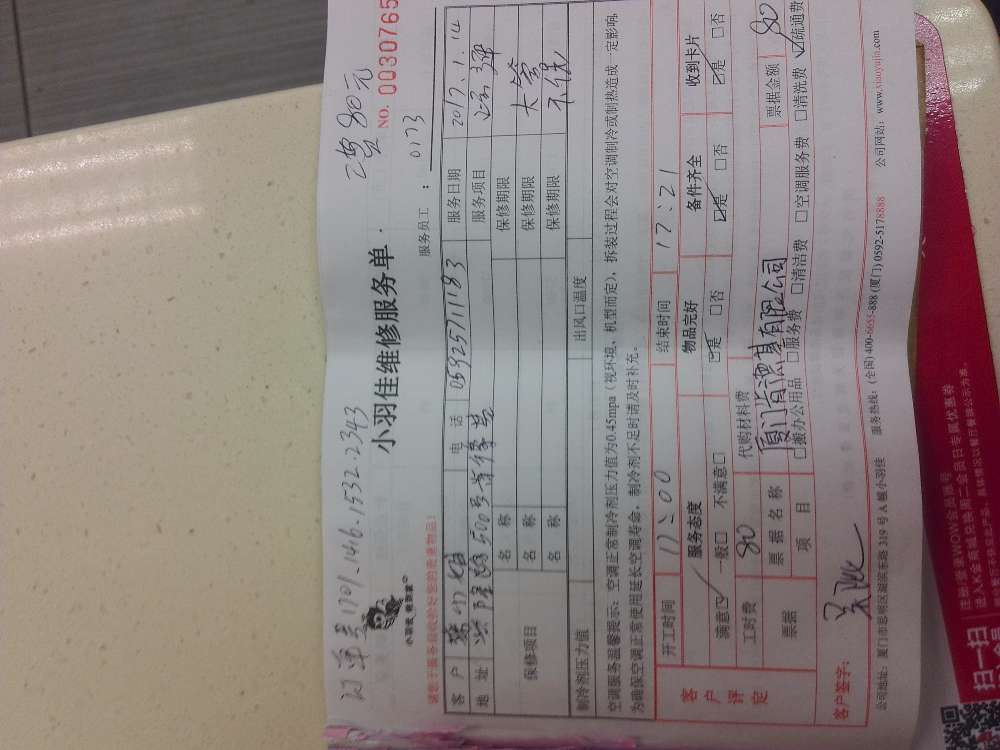 订单号1701.1416.1532.2343
工费80元
小羽佳维修服务单
NO. 0030765
小羽佳 教到家
服务员工: 0173
客户 电话 05925711183 服务日期 2017.1.14
地址 500号 服务项目
保修项目 名称 保修期限
名称 保修期限 大管
名称 保修期限 不保
制冷剂压力值 出风口温度
空调服务温馨提示:空调正常制冷剂压力值为0.45mpa(视环境、机型而定)、拆装过程会对空调制冷或制热造成一定影响,
为确保空调正常使用延长空调寿命,制冷剂不足时请及时补充。
开工时间 17:00 结束时间 17:21
客户评定 服务态度 物品完好 备件齐全 收到卡片
满意☑ 一般□ 不满意□ ☑是 □否 ☑是 □否 ☑是 □否
工时费 80 代购材料费 票据金额 80
票据 票据名称 有限公司
项目 □搬办公用品 □服务费 □清洁费 □空调服务费 □清洗费 ☑疏通费
客户签字:
公司地址:厦门市思明区湖滨东路319号A幢小羽佳 服务热线:(全国)400-6655-888 (厦门)0592-5178888 公司网站:www.xiaoyujia.com
扫一扫
注册/登录WOW会员账号
进入K金商城兑换周二会员日专属优惠券